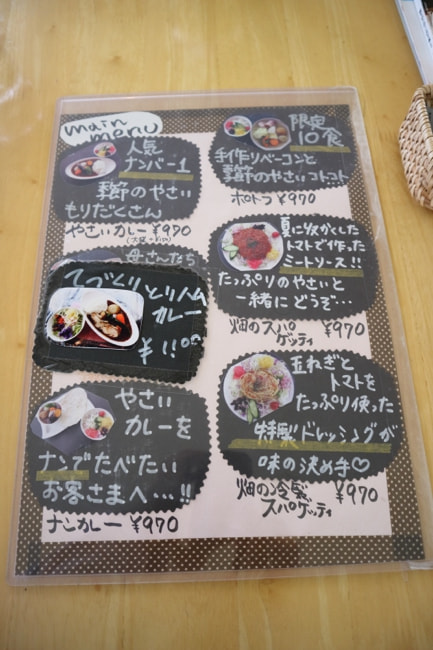 main
menu
人気
ナンバー1
季節のやさい
もりだくさん
やさいカレー ¥970
母さんたち
てづくりとりハム
カレー
¥1100
やさい
カレーを
ナンでたべたい
お客さまへ…!!
ナンカレー ¥970
限定
10食
手作りベーコンと
季節のやさいコトコト
ポトフ ¥970
トマトで作った
ミートソース!!
たっぷりのやさいと
一緒にどうぞ…
畑のスパ
ゲッティ ¥970
玉ねぎと
トマトを
たっぷり使った
特製ドレッシングが
味の決め手♡
畑の冷製 ¥970
スパゲッティ